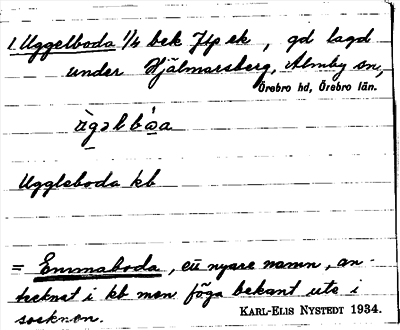 1. Uggelboda 1/4 bek Jlp ek, gd lagd
under Hjälmarsberg, Almby sn,
Örebro hd, Örebro län.
Uggleboda kb
= Emmaboda, en nyare namn, an-
tecknat i kb men föga bekant ute i
socknen.
KARL-ELIS NYSTEDT 1934.